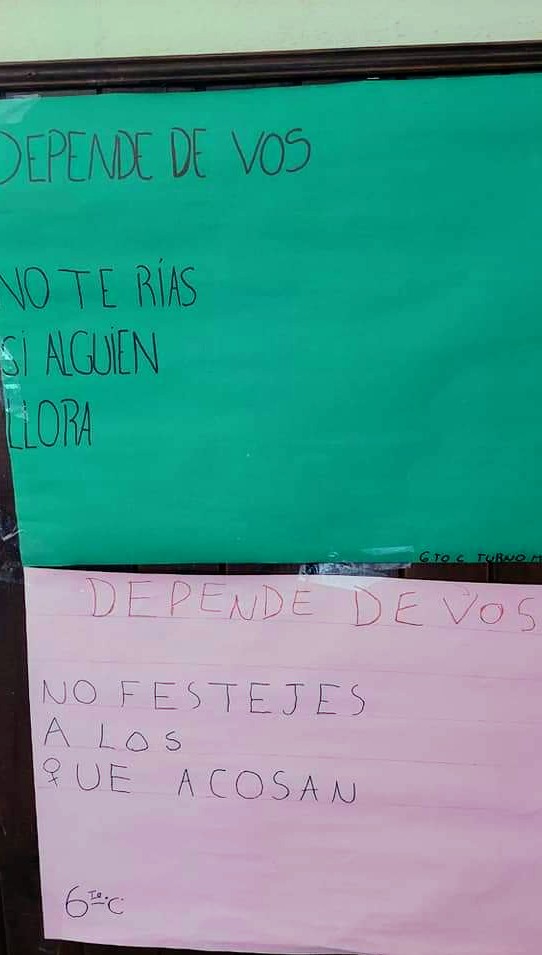 DEPENDE DE VOS
NO TE RÍAS
SI ALGUIEN
LLORA
6 TO C TURNO M
DEPENDE DE VOS
NO FESTEJES
A LOS
QUE ACOSAN
6to C